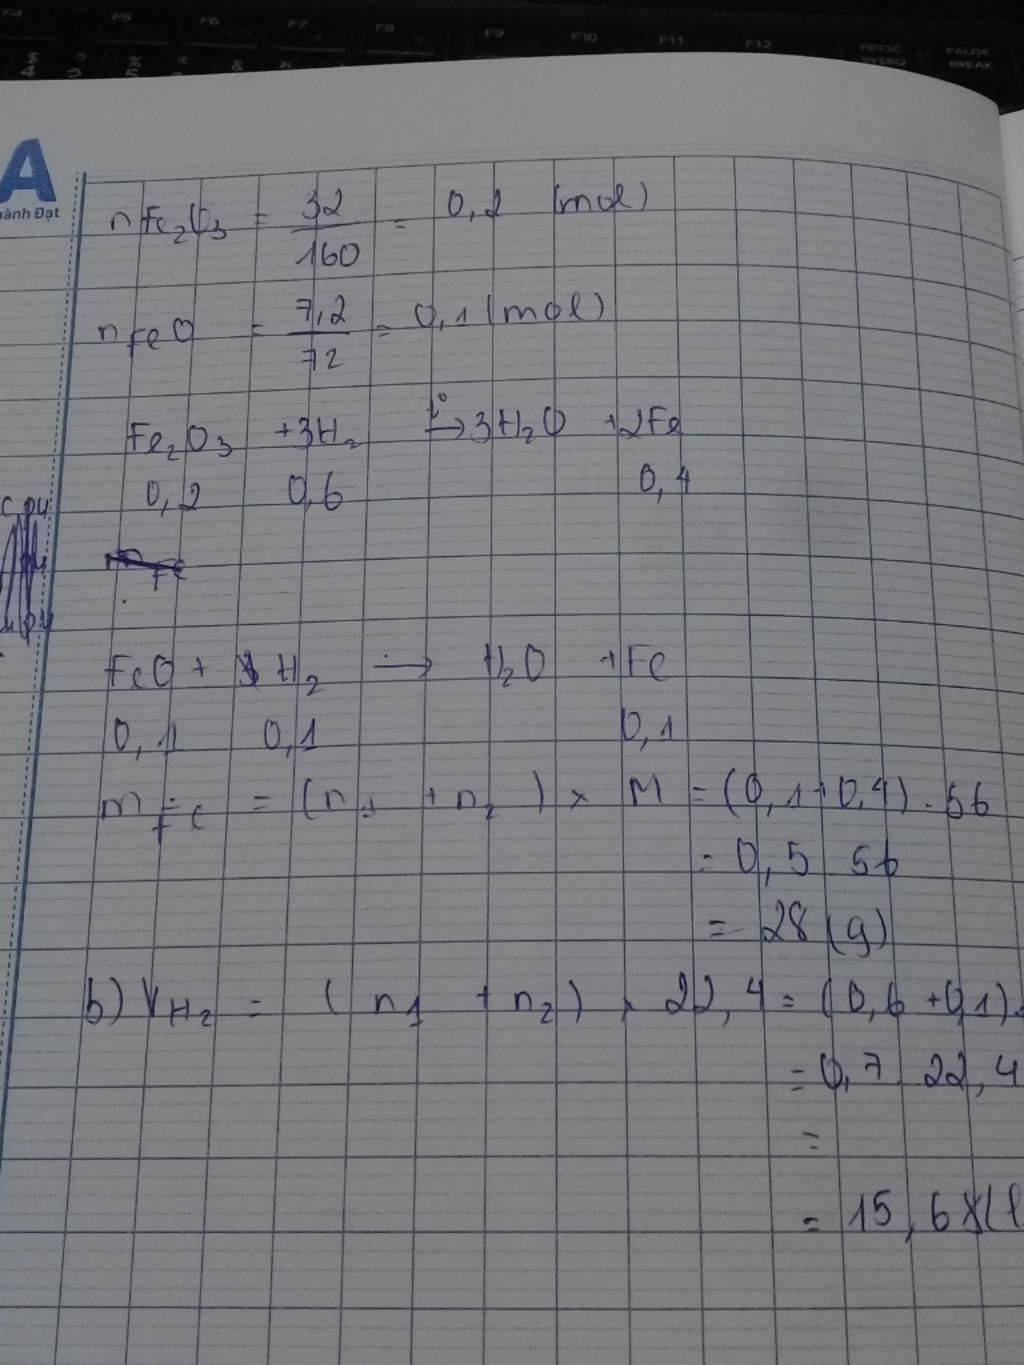 F4 F5 F6 F7 F8 F9 F10 F11 F12 PRTSC SYSRQ PAUSE BREAK
$ 4 % 5 &
A
ành Đạt
nFe₂O₃ = 32/160 = 0,2 (mol)
nFeO = 7,2/72 = 0,1 (mol)
Fe₂O₃ +3H₂ t°→ 3H₂O +2Fe
0,2 0,6 0,4
FeO + H₂ → H₂O + Fe
0,1 0,1 0,1
mFe = (n₁ + n₂) × M = (0,1+0,4) . 56
= 0,5 56
= 28 (g)
b) VH₂ = (n₁ + n₂) . 22,4 = (0,6 +0,1).
= 0,7 22,4
=
= 15,68(l